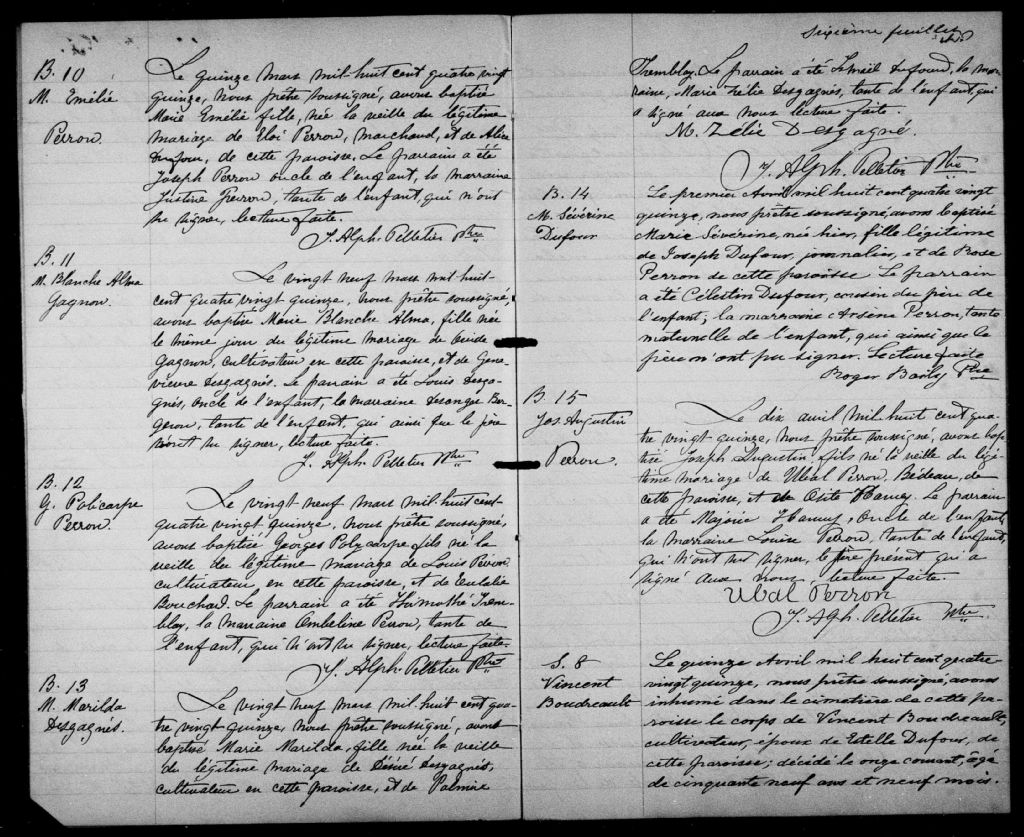 B. 10
M. Emélie
Perron.
Le quinze mars mil-huit cent quatre vingt
quinze, nous prêtre soussigné, avons baptisé
Marie Emélie fille, née la veille du légitime
mariage de Eloi Perron, marchand, et de Alice
Dufour, de cette paroisse. Le parrain a été
Joseph Perron oncle de l'enfant, la marraine
Justine Perron, tante de l'enfant, qui n'ont
su signer, lecture faite.
J. Alph. Pelletier Ptre
B. 11
M. Blanche Alma
Gagnon.
Le vingt neuf mars mil huit-
cent quatre vingt quinze, nous prêtre soussigné,
avons baptisé Marie Blanche Alma, fille née
le même jour du légitime mariage de
Gagnon, cultivateur en cette paroisse, et de Gene-
vieuve Desgagnés. Le parrain a été Louis Desga-
gnés, oncle de l'enfant, la marraine Desanges Ber-
geron, tante de l'enfant, qui ainsi que le père
n'ont su signer, lecture faite.
J. Alph. Pelletier Ptre
B. 12
G. Policarpe
Perron.
Le vingt neuf mars mil-huit cent
quatre vingt quinze, nous prêtre soussigné,
avons baptisé Georges Polycarpe fils né la
veille du légitime mariage de Louis Perron
cultivateur en cette paroisse, et de Eulalie
Bouchard. Le parrain a été Thimothé Trem-
blay, la marraine Ombeline Perron, tante de
l'enfant, qui n'ont su signer, lecture faite.
J. Alph. Pelletier Ptre
B. 13
M. Marilda
Desgagnés.
Le vingt neuf mars mil huit cent qua-
tre vingt quinze, nous prêtre soussigné, avons
baptisé Marie Marilda, fille née la veille
du légitime mariage de Désiré Desgagnés,
cultivateur en cette paroisse, et de Palmire
Sixième feuillet
Tremblay. Le parrain a été Ismaïl Dufour, la mar-
raine, Marie Zélie Desgagnés, tante de l'enfant, qui
a signé avec nous lecture faite.
M. Zélie Desgagné.
J. Alph. Pelletier Ptre
B. 14
M. Sévérine
Dufour
Le premier Avril mil huit cent quatre vingt
quinze, nous prêtre soussigné, avons baptisé
Marie Sévérine, née hier, fille légitime
de Joseph Dufour, journalier, et de Rose
Perron de cette paroisse. Le parrain
a été Célestin Dufour, cousin du père de
l'enfant; la marraine Arsène Perron, tante
maternelle de l'enfant, qui ainsi que le
père n'ont pu signer. Lecture faite
Roger Boily Ptre
B. 15
Jos. Augustin
Perron.
Le dix avril mil-huit cent qua-
tre vingt quinze, nous prêtre soussigné, avons bap-
tisé Joseph Augustin fils né la veille du légi-
time mariage de Ubal Perron, Bédeau, de
cette paroisse, et de Osite Harvey. Le parrain
a été Majorie Harvey, oncle de l'enfant,
la marraine Louise Perron, tante de l'enfant,
qui n'ont su signer, le père présent qui a
signé avec nous, lecture faite.
Ubal Perron
J. Alph. Pelletier Ptre
S. 8
Vincent
Boudreault
Le quinze Avril mil huit cent quatre
vingt quinze, nous prêtre soussigné, avons
inhumé dans le cimetière de cette pa-
roisse le corps de Vincent Boudreault,
cultivateur, époux de Estelle Dufour, de
cette paroisse; décédé le onze courant, âgé
de cinquante neuf ans et neuf mois.